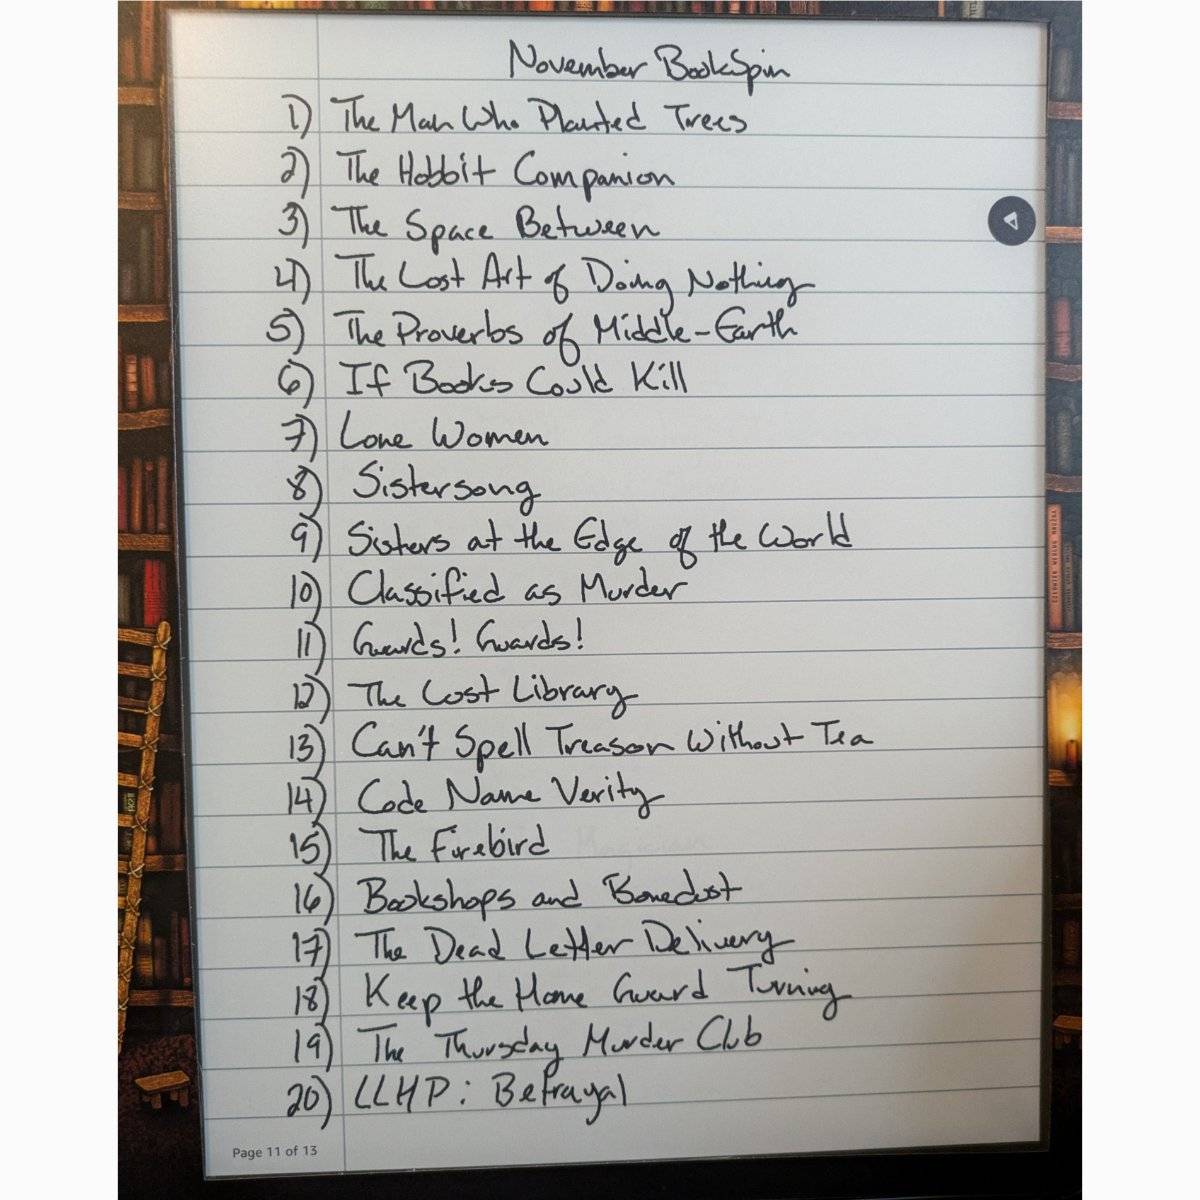 November BookSpin
1) The Man Who Planted Trees
2) The Hobbit Companion
3) The Space Between
4) The Lost Art of Doing Nothing
5) The Proverbs of Middle-Earth
6) If Books Could Kill
7) Lone Women
8) Sistersong
9) Sisters at the Edge of the World
10) Classified as Murder
11) Guards! Guards!
12) The Lost Library
13) Can't Spell Treason Without Tea
14) Code Name Verity
15) The Firebird
16) Bookshops and Bonedust
17) The Dead Letter Delivery
18) Keep the Home Guard Turning
19) The Thursday Murder Club
20) LLHP: Betrayal
Page 11 of 13